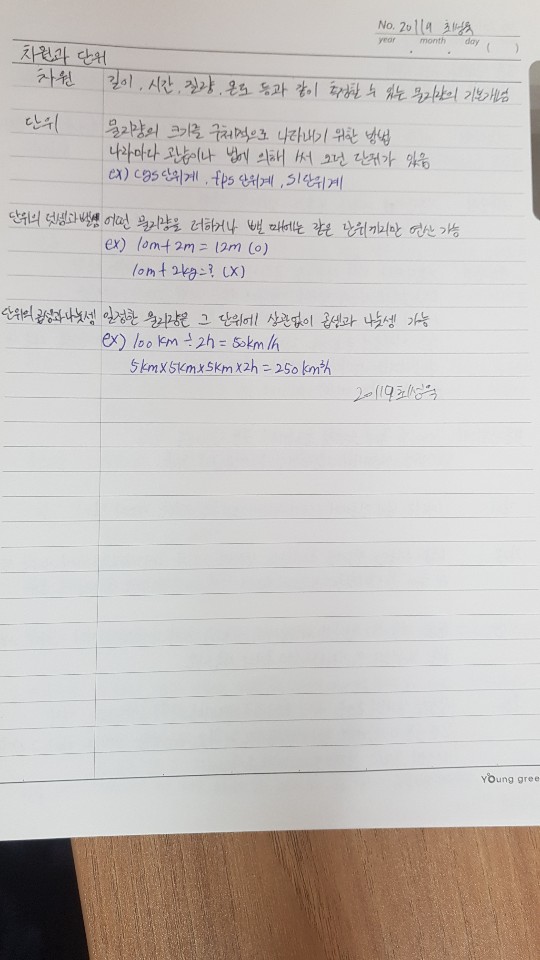 No. 20119 최성욱
year . month . day ( )
차원과 단위
차원 길이, 시간, 질량, 온도 등과 같이 측정할 수 있는 물리량의 기본개념
단위 물리량의 크기를 구체적으로 나타내기 위한 방법
나라마다 관습이나 법에 의해 써 오던 단위가 있음
ex) cgs단위계, fps단위계, SI단위계
단위의 덧셈과 뺄셈 어떤 물리량을 더하거나 뺄 때에는 같은 단위끼리만 연산 가능
ex) 10m + 2m = 12m (O)
10m + 2kg = ? (X)
단위의 곱셈과 나눗셈 일정한 물리량은 그 단위에 상관없이 곱셈과 나눗셈 가능
ex) 100km ÷ 2h = 50km/h
5km×5km×5km×2h = 250km³h
20119 최성욱
Young gree